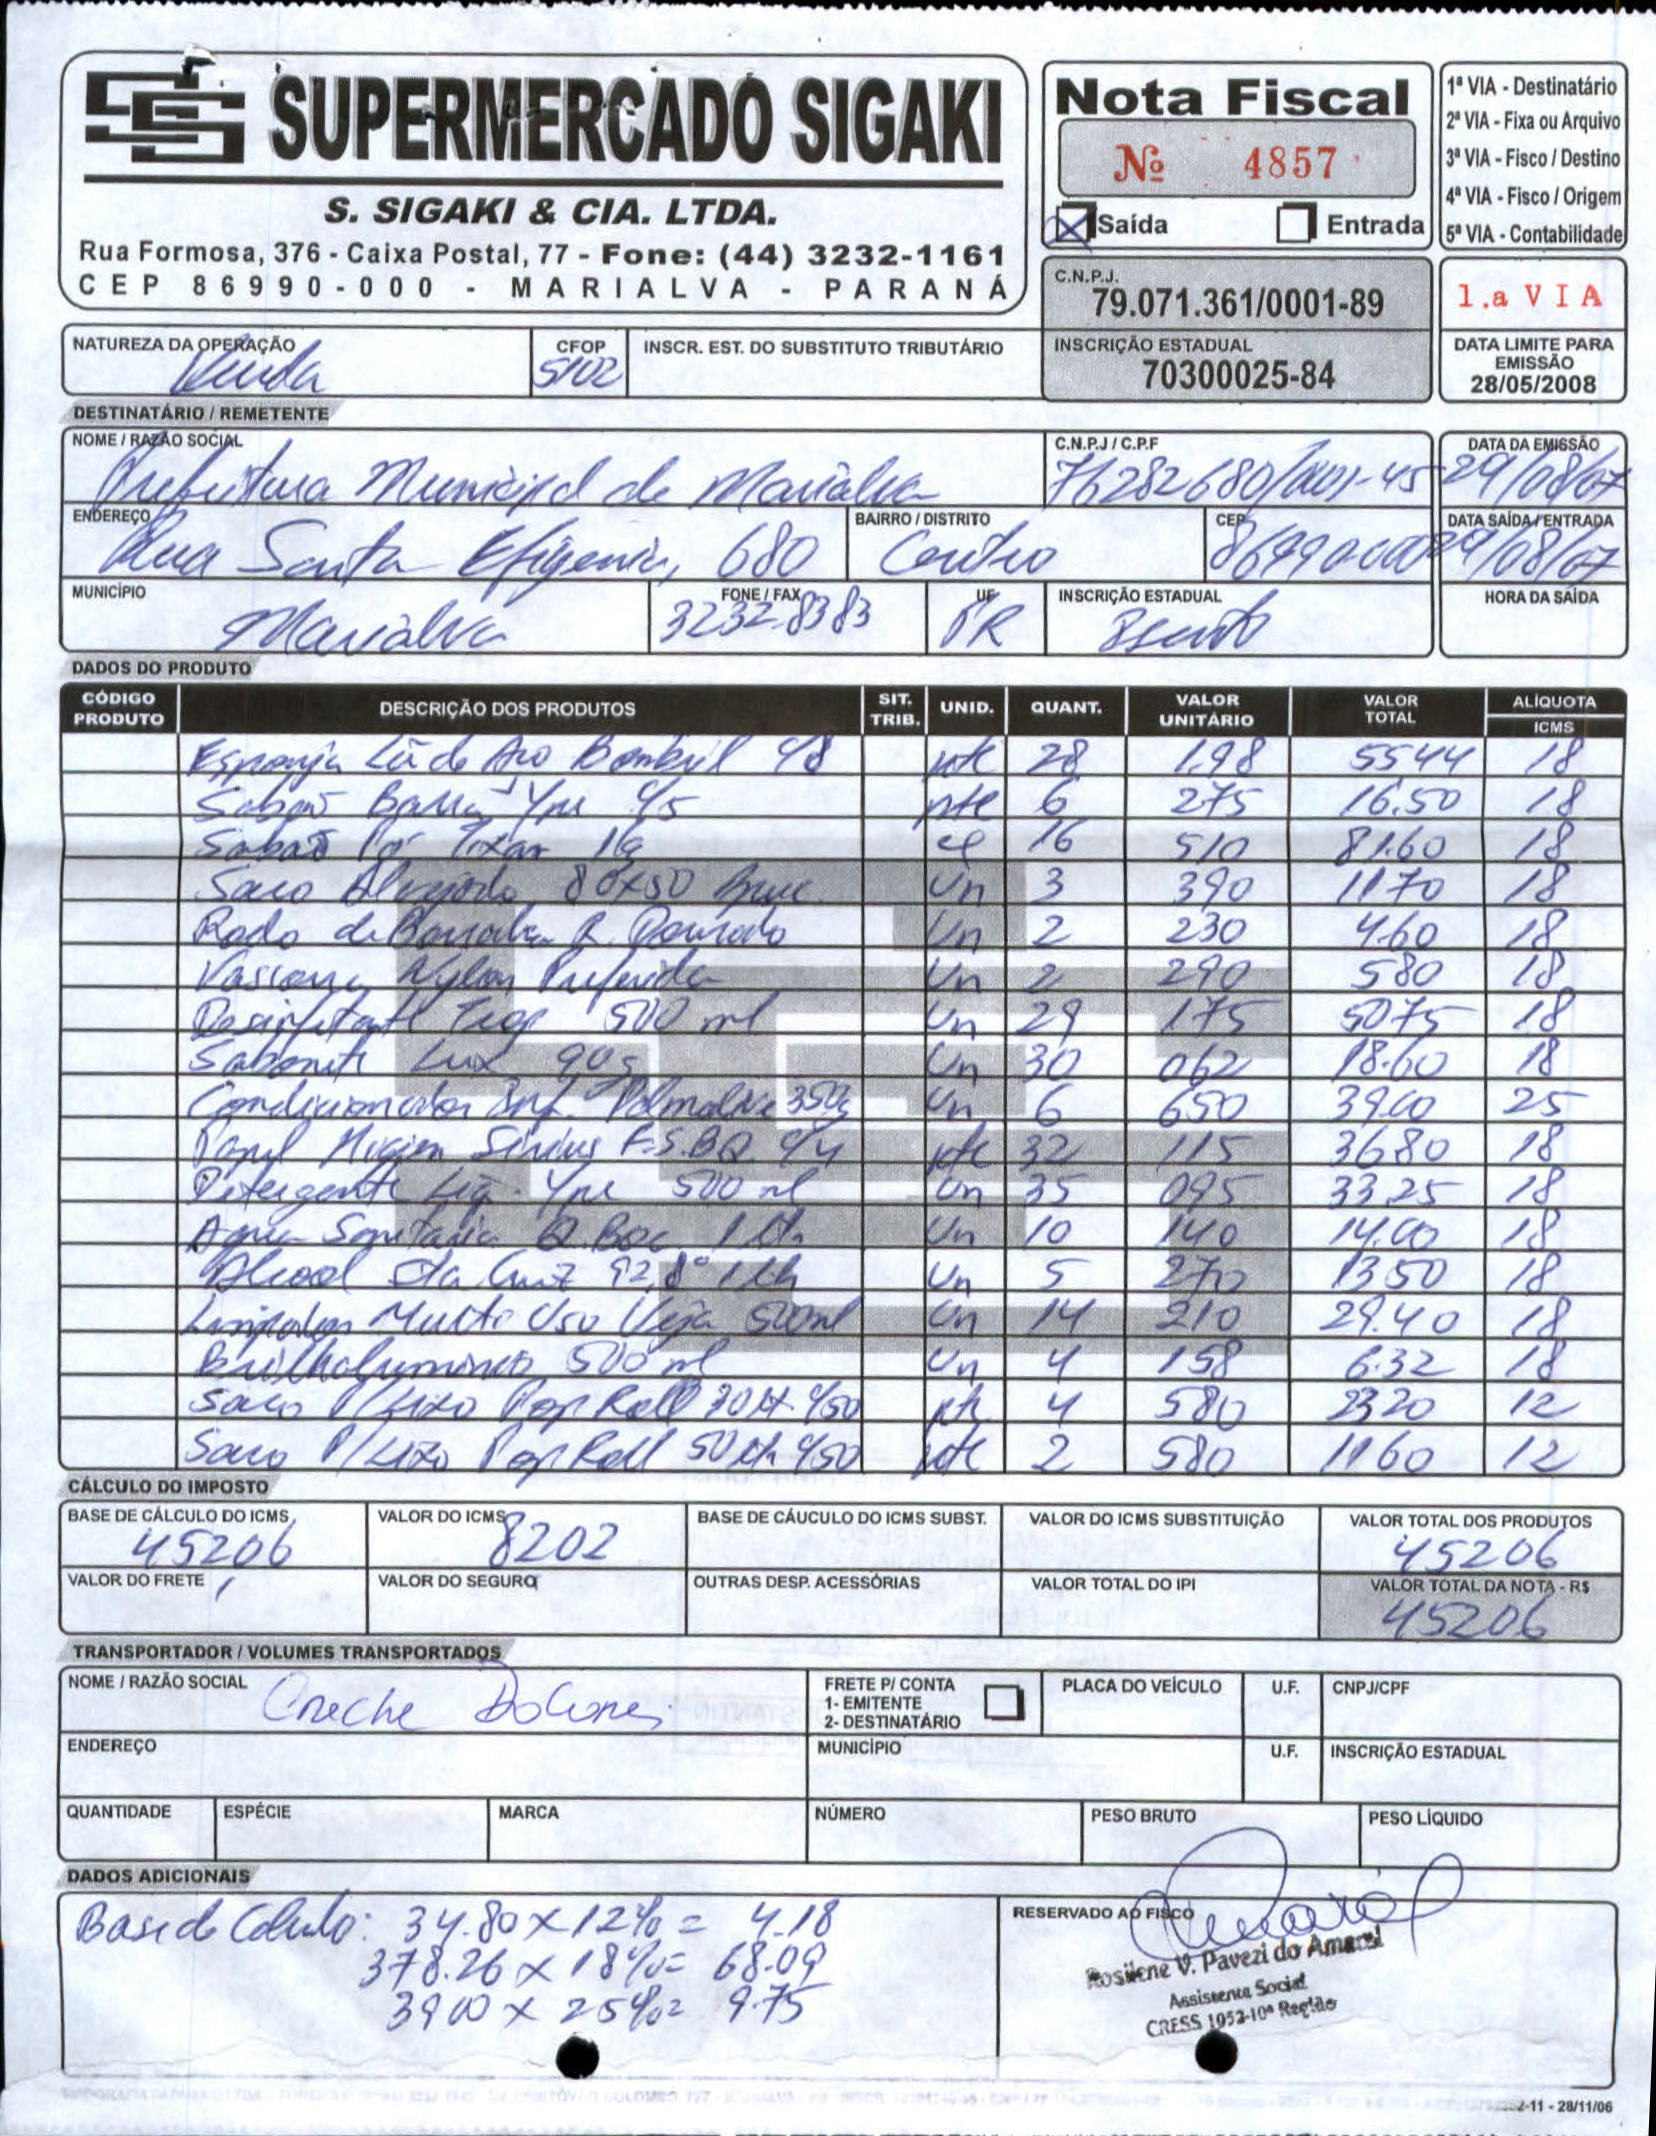 SUPERMERCADO SIGAKI
S. SIGAKI & CIA. LTDA.
Rua Formosa, 376 - Caixa Postal, 77 - Fone: (44) 3232-1161
CEP 86990-000 - MARIALVA - PARANÁ
Nota Fiscal
Nº 4857
X Saída Entrada
1ª VIA - Destinatário
2ª VIA - Fixa ou Arquivo
3ª VIA - Fisco / Destino
4ª VIA - Fisco / Origem
5ª VIA - Contabilidade
C.N.P.J.
79.071.361/0001-89
INSCRIÇÃO ESTADUAL
70300025-84
1.a VIA
DATA LIMITE PARA
EMISSÃO
28/05/2008
NATUREZA DA OPERAÇÃO CFOP INSCR. EST. DO SUBSTITUTO TRIBUTÁRIO
Venda 5102
DESTINATÁRIO / REMETENTE
NOME / RAZÃO SOCIAL C.N.P.J / C.P.F DATA DA EMISSÃO
Prefeitura Municipal de Marialva 76282680/0001-45 29/08/07
ENDEREÇO BAIRRO / DISTRITO CEP DATA SAÍDA / ENTRADA
Rua Santa Efigenia, 680 Centro 86990000 29/08/07
MUNICÍPIO FONE / FAX UF INSCRIÇÃO ESTADUAL HORA DA SAÍDA
Marialva 3232-8383 PR Isento
DADOS DO PRODUTO
CÓDIGO PRODUTO DESCRIÇÃO DOS PRODUTOS SIT. TRIB. UNID. QUANT. VALOR UNITÁRIO VALOR TOTAL ALÍQUOTA ICMS
Esponja Lã de Aço Bombril c/8 pte 28 1,98 5544 18
Sabão Barra Ype c/5 pte 6 275 16.50 18
Sabão Pó Tixan 1 cx 16 510 81.60 18
Saco Alvejado 80x50 3 390 1170 18
Rodo de Borracha R. Dourado Un 2 230 4.60 18
Vassoura Nylon Preferida Un 2 290 580 18
Desinfetante Trop 500 ml Un 29 175 5075 18
Sabonete Lux 90g Un 30 062 18.60 18
Condicionador Inf. Palmolive 350g Un 6 650 39.00 25
Papel Higien Sirius F.S.BQ c/4 pte 32 115 3680 18
Detergente Liq. Ype 500 ml Un 35 095 33.25 18
Agua Sanitaria Q.Boa 1 Lt Un 10 140 14.00 18
Alcool Sta Cruz 92,8° 1 Lt Un 5 270 13.50 18
Limpador Multi Uso Veja 500ml Un 14 210 29.40 18
Brilhaluminio 500 ml Un 4 158 6.32 18
Saco P/ Lixo Pop Roll 30 Lt c/50 pte 4 580 2320 12
Saco P/ Lixo Pop Roll 50 Lt c/50 pte 2 580 1160 12
CÁLCULO DO IMPOSTO
BASE DE CÁLCULO DO ICMS VALOR DO ICMS BASE DE CÁUCULO DO ICMS SUBST. VALOR DO ICMS SUBSTITUIÇÃO VALOR TOTAL DOS PRODUTOS
45206 8202 45206
VALOR DO FRETE VALOR DO SEGURO OUTRAS DESP. ACESSÓRIAS VALOR TOTAL DO IPI VALOR TOTAL DA NOTA - R$
45206
TRANSPORTADOR / VOLUMES TRANSPORTADOS
NOME / RAZÃO SOCIAL FRETE P/ CONTA PLACA DO VEÍCULO U.F. CNPJ/CPF
Creche Dolores 1- EMITENTE
2- DESTINATÁRIO
ENDEREÇO MUNICÍPIO U.F. INSCRIÇÃO ESTADUAL
QUANTIDADE ESPÉCIE MARCA NÚMERO PESO BRUTO PESO LÍQUIDO
DADOS ADICIONAIS
Base de Calculo: 34.80 x 12% = 4.18
378.26 x 18% = 68.09
3900 x 25% = 9.75
RESERVADO AO FISCO
Rosilene V. Pavezi do Amaral
Assistente Social
CRESS 1052-10ª Região
-11 - 28/11/06